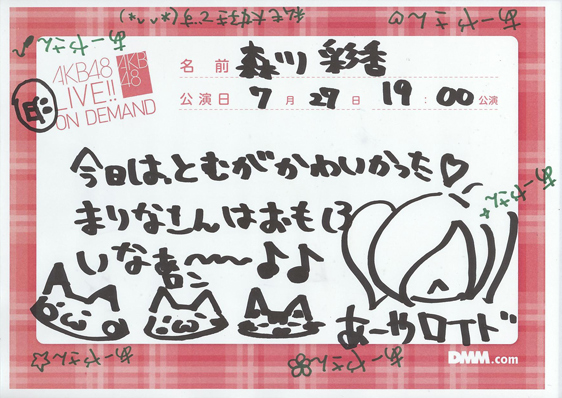 私も大好きです(*^^*)
あーやさん♡
あーやさん♪
AKB48
LIVE!!
ON DEMAND
AKB
48
名前 森川 彩香
公演日 7月29日 19:00公演
今日は、ともがかわいかった♡
まりなさんはおもしろ
いなぁ〜〜♪♪
あーやさん
あーやロイド
あーやさん☆
あーやさん
DMM.com